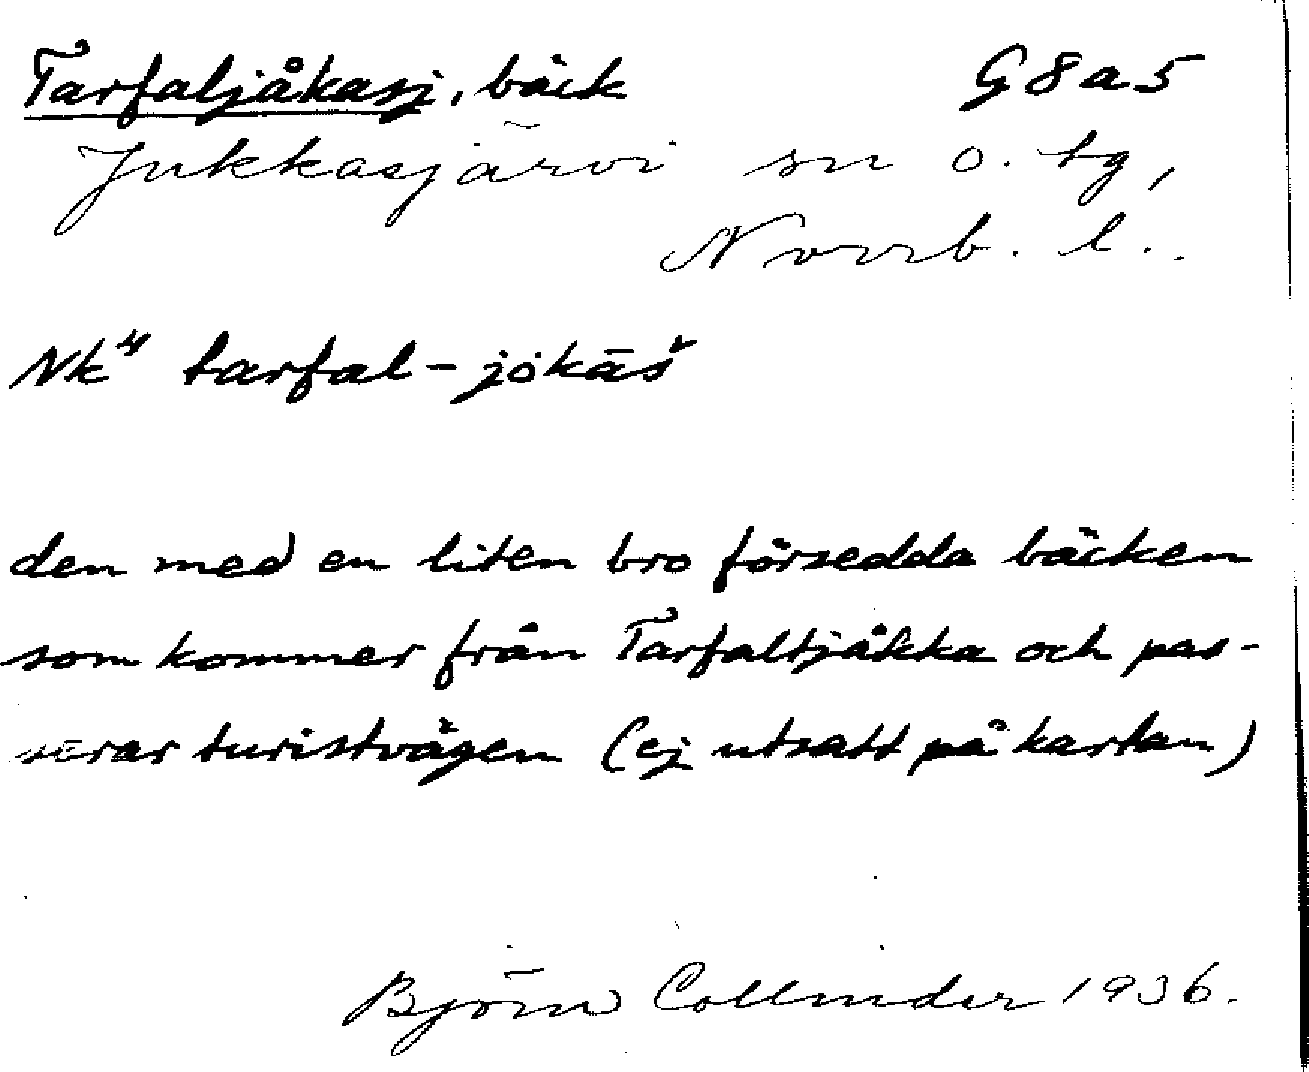 Tarfaljåkasj, bäck G8a5
Jukkasjärvi sn o. tg,
Norrb. l.
Nk⁴ tarfal-jòkāš̌
den med en liten bro försedda bäcken
som kommer från Tarfaltjåkka och pas-
serar turistvägen (ej utsatt på kartan)
Björn Collinder 1936.